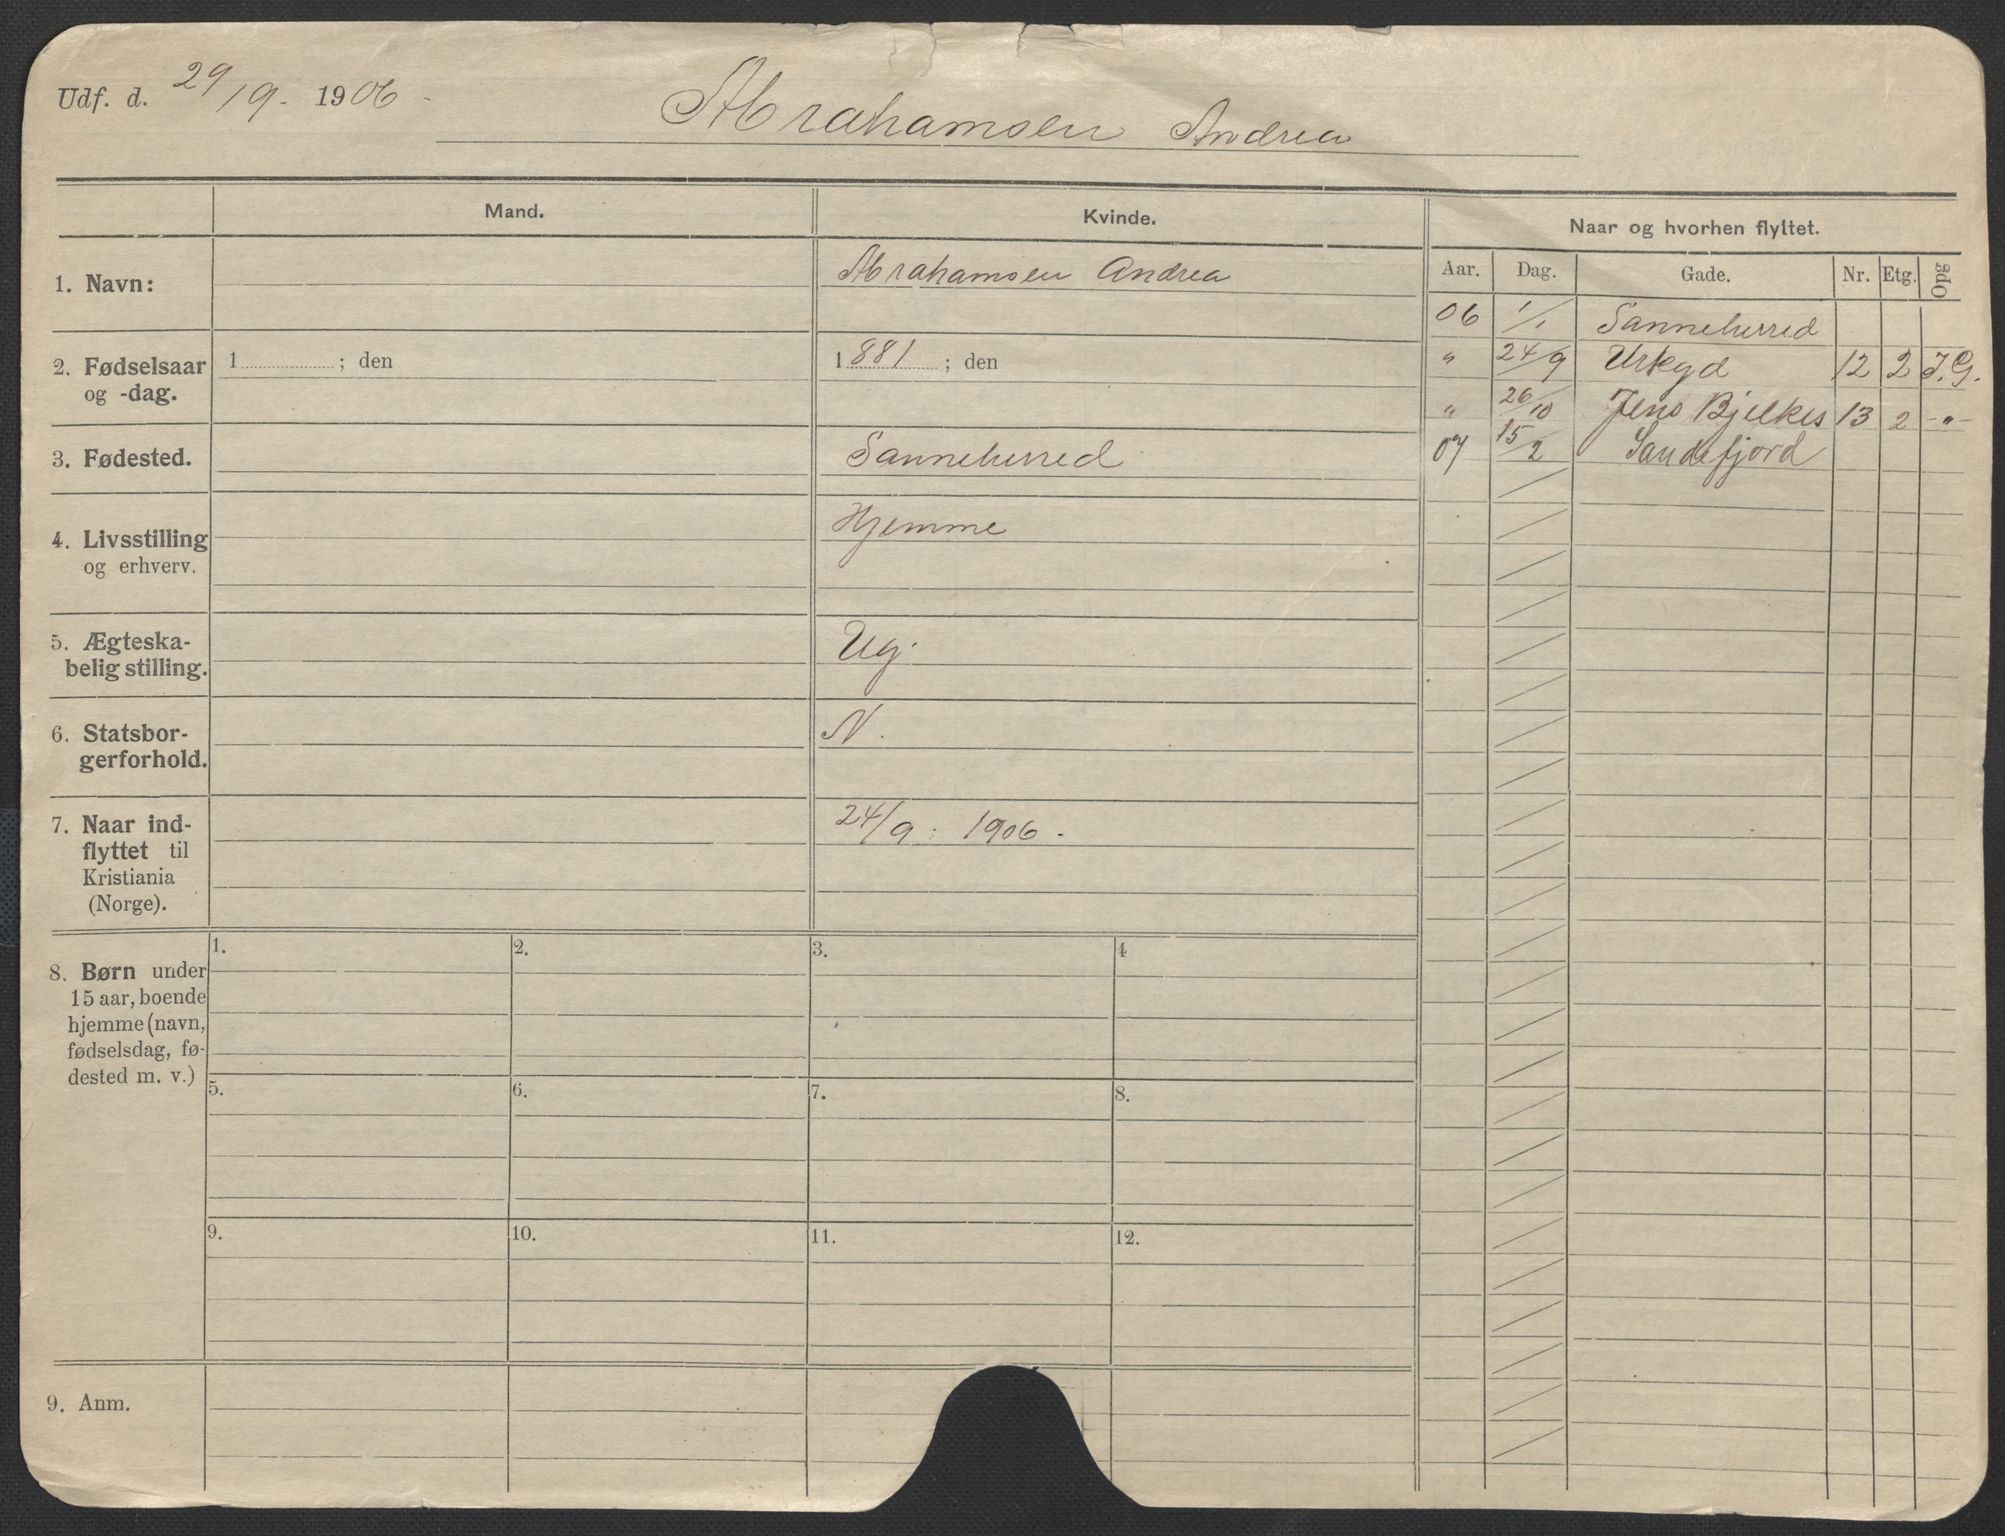 Udf. d. 29/9. 1906.
Abrahamsen Andrea
Mand.
Kvinde.
Naar og hvorhen flyttet.
Aar. Dag. Gade. Nr. Etg. Opg
1. Navn:
Abrahamsen Andrea
06 1/1 Sanneherred
2. Fødselsaar
og -dag.
1 ; den
1881 ; den
" 24/9 Urtegd 12 2 F.G.
" 26/10 Jens Bjelkes 13 2 -"-
07 15/2 Sandefjord
3. Fødested.
Sanneherred
4. Livsstilling
og erhverv.
Hjemme
5. Ægteska-
belig stilling.
Ug.
6. Statsbor-
gerforhold.
N.
7. Naar ind-
flyttet til
Kristiania
(Norge).
24/9. 1906.
8. Børn under
15 aar, boende
hjemme (navn,
fødselsdag, fø-
dested m. v.)
1. 2. 3. 4
5. 6. 7. 8.
9. 10. 11. 12.
9. Anm.